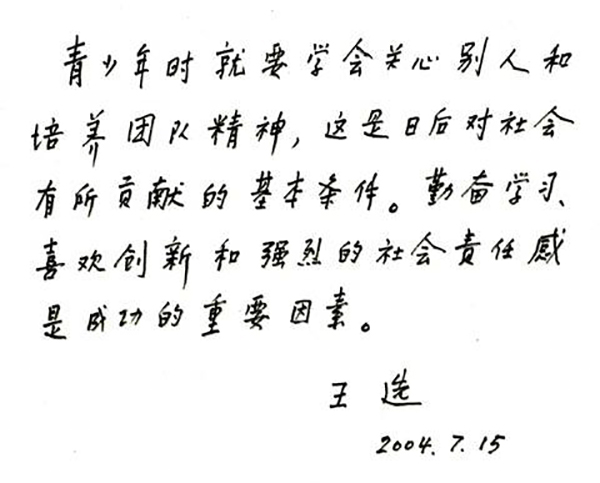 青少年时就要学会关心别人和
培养团队精神,这是日后对社会
有所贡献的基本条件。勤奋学习、
喜欢创新和强烈的社会责任感
是成功的重要因素。
王选
2004.7.15